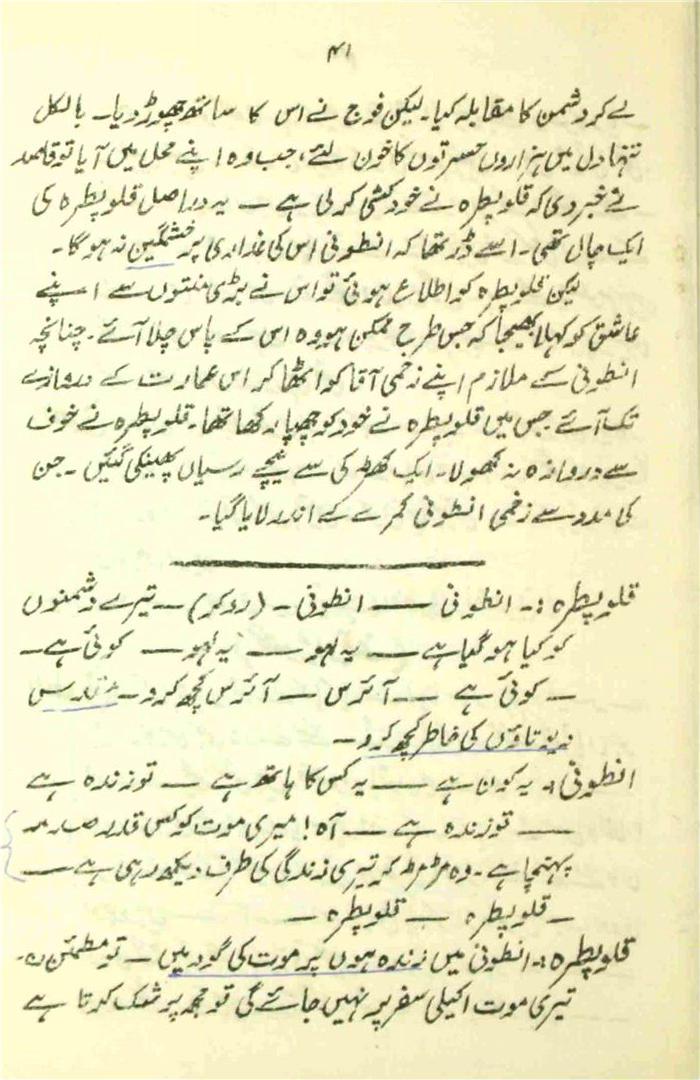 ۴۱
لے کر دشمن کا مقابلہ کیا۔ لیکن فوج نے اس کا ساتھ چھوڑ دیا۔ بالکل
تنہا دل میں ہزاروں حسرتوں کا خون لئے، جب وہ اپنے محل میں آیا تو قاصد
نے خبر دی کہ قلوپطرہ نے خودکشی کر لی ہے — یہ دراصل قلوپطرہ کی
ایک چال تھی۔ اسے ڈر تھا کہ انطونی اس کی غداری پر خشمگین نہ ہو گا۔
لیکن قلوپطرہ کو اطلاع ہوئی تو اس نے بڑی منتوں سے اپنے
عاشق کو کہلا بھیجا کہ جس طرح ممکن ہو وہ اس کے پاس چلا آئے۔ چنانچہ
انطونی کے ملازم اپنے زخمی آقا کو اٹھا کر اس عمارت کے دروازے
تک آئے جس میں قلوپطرہ نے خود کو چھپا رکھا تھا۔ قلوپطرہ نے خوف
سے دروازہ نہ کھولا۔ ایک کھڑکی سے نیچے رسیاں پھینکی گئیں۔ جن
کی مدد سے زخمی انطونی کمرے کے اندر لایا گیا۔
قلوپطرہ :۔ انطونی — انطونی — (رو کر) — تیرے دشمنوں
کو کیا ہو گیا ہے — یہ لہو — یہ لہو — کوئی ہے —
— کوئی ہے — آئرس — آئرس کچھ کرو — مقدس
دیوتاؤں کی خاطر کچھ کرو —
انطونی :۔ یہ کون ہے — یہ کس کا ہاتھ ہے — تو زندہ ہے
— تو زندہ ہے — آہ! میری موت کو کس قدر صدمہ
پہنچا ہے۔ وہ مڑ مڑ کر تیری زندگی کی طرف دیکھ رہی ہے —
— قلوپطرہ — قلوپطرہ —
قلوپطرہ :۔ انطونی میں زندہ ہوں پر موت کی گود میں — تو مطمئن رہ۔
تیری موت اکیلی سفر پر نہیں جائے گی تو مجھ پر شک کرتا ہے